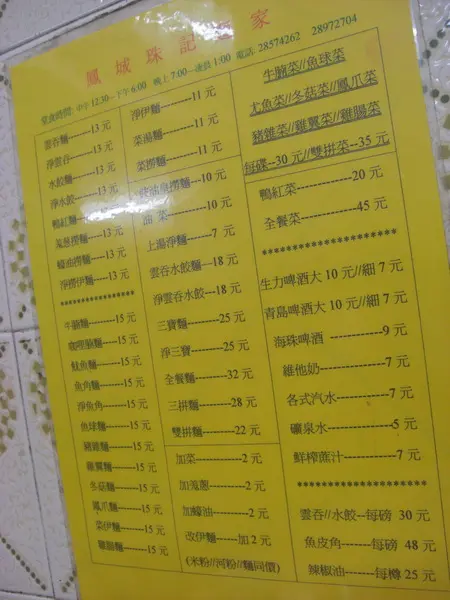 鳳城珠記麵家
堂食時間: 中午 12:30--下午 6:00 晚上 7:00--凌晨 1:00 電話: 28574262 28972704
雲吞麵-----13 元
淨雲吞-----13 元
水餃麵-----13 元
淨水餃-----13 元
鴨紅麵-----13 元
蔥撈麵-----13 元
蠔油撈麵---13 元
淨撈伊麵---13 元
******************
牛腩麵------15 元
咖喱腩麵----15 元
魷魚麵------15 元
魚角麵------15 元
淨魚角------15 元
魚球麵------15 元
豬雜麵------15 元
雞翼麵------15 元
冬菇麵------15 元
鳳爪麵------15 元
菜伊麵------15 元
雞腸麵------15 元
淨伊麵--------11 元
菜湯麵--------11 元
菜撈麵--------11 元
豉油皇撈麵--10 元
油 菜--------10 元
上湯淨麵------7 元
雲吞水餃麵---18 元
淨雲吞水餃---18 元
三寶麵--------25 元
淨三寶--------25 元
全餐麵--------32 元
三拼麵--------28 元
雙拼麵--------22 元
加菜---------2 元
加蔥-------2 元
加蠔油-------2 元
改伊麵-----加 2 元
(米粉//河粉//麵同價)
牛腩菜//魚球菜
尤魚菜//冬菇菜//鳳爪菜
豬雜菜//雞翼菜//雞腸菜
每碟--30 元//雙拼菜--35 元
鴨紅菜-----------20 元
全餐菜-----------45 元
**************************
生力啤酒大 10 元//細 7 元
青島啤酒大 10 元//細 7 元
海珠啤酒 -----------9 元
維他奶-------------7 元
各式汽水-----------7 元
礦泉水-------------5 元
鮮榨蔗汁-----------7 元
**************************
雲吞//水餃--每磅 30 元
魚皮角------每磅 48 元
辣椒油------每樽 25 元